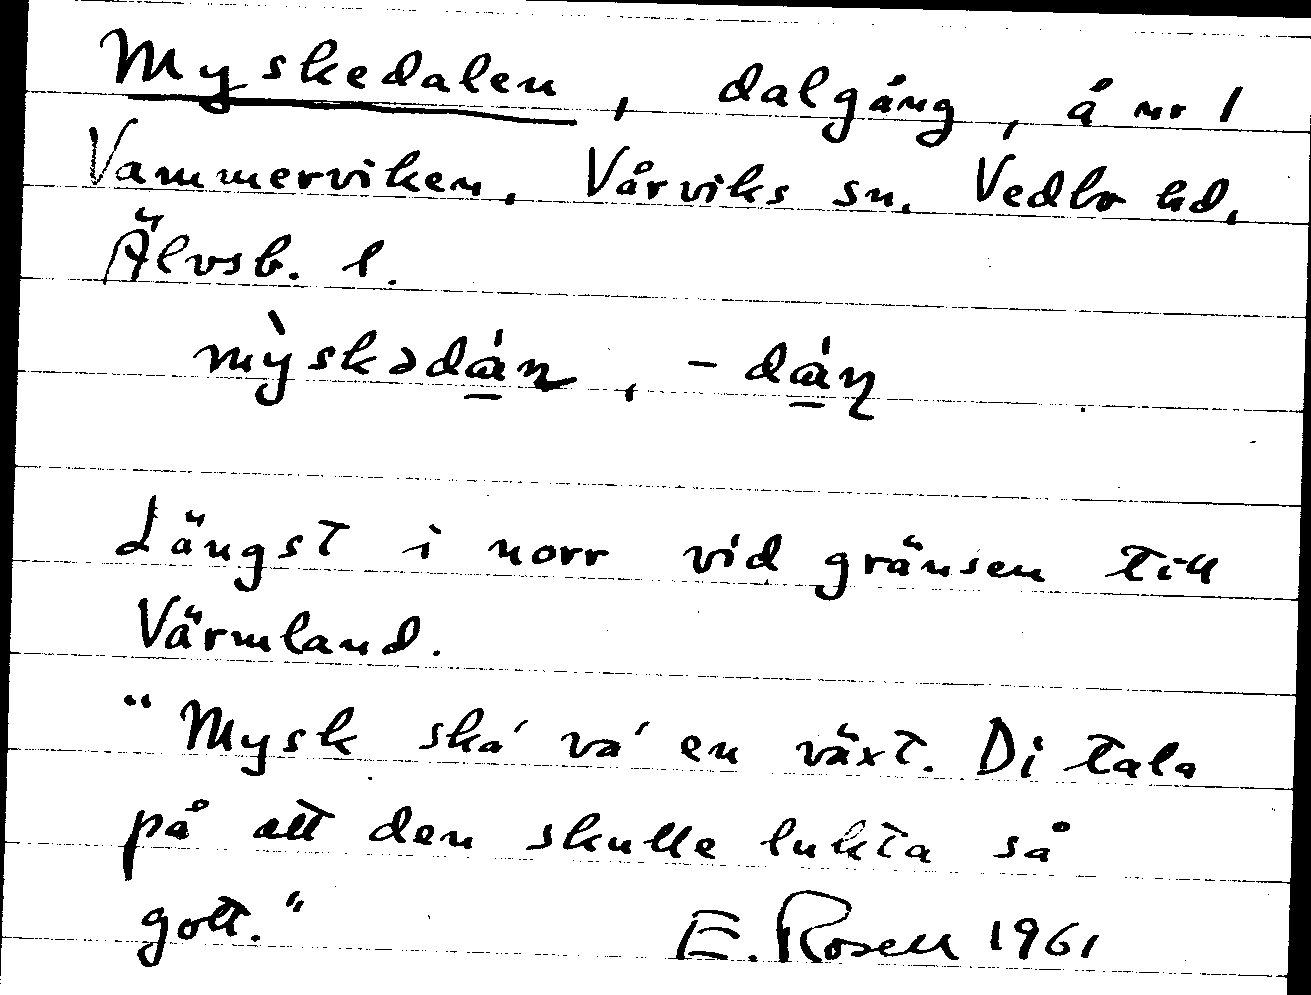 Myskedalen, dalgång, å nr 1
Vammerviken, Vårviks sn. Vedbo hd.
Älvsb. l.
mỳskədá̱n, -dá̱ɳ
Längst i norr vid gränsen till
Värmland.
"Mysk ska' va' en växt. Di tala
på att den skulle lukta så
gott." E. Rosell 1961